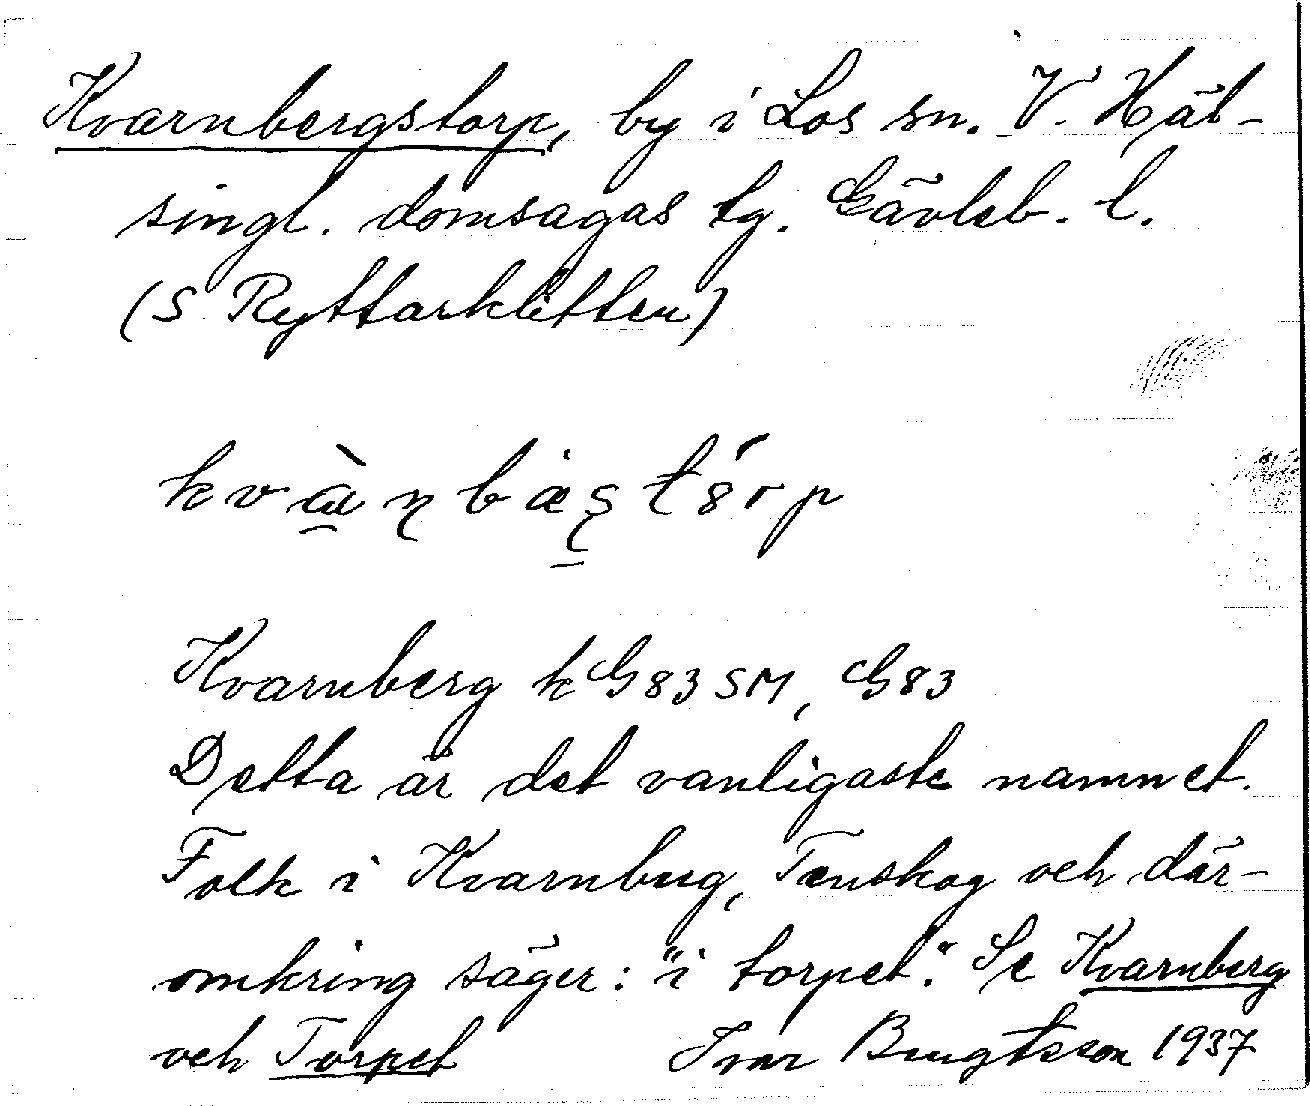 Kvarnbergstorp, by i Los sn. V. Häl-
singl. domsagas tg. Gävleb. l.
(S Ryttarklitten)
Kvarnberg k G83 SM, G83
Detta är det vanligaste namnet.
Folk i Kvarnberg, Tenskog och där-
omkring säger: "i torpet". Se Kvarnberg
och Torpet Ivar Bengtsson 1937